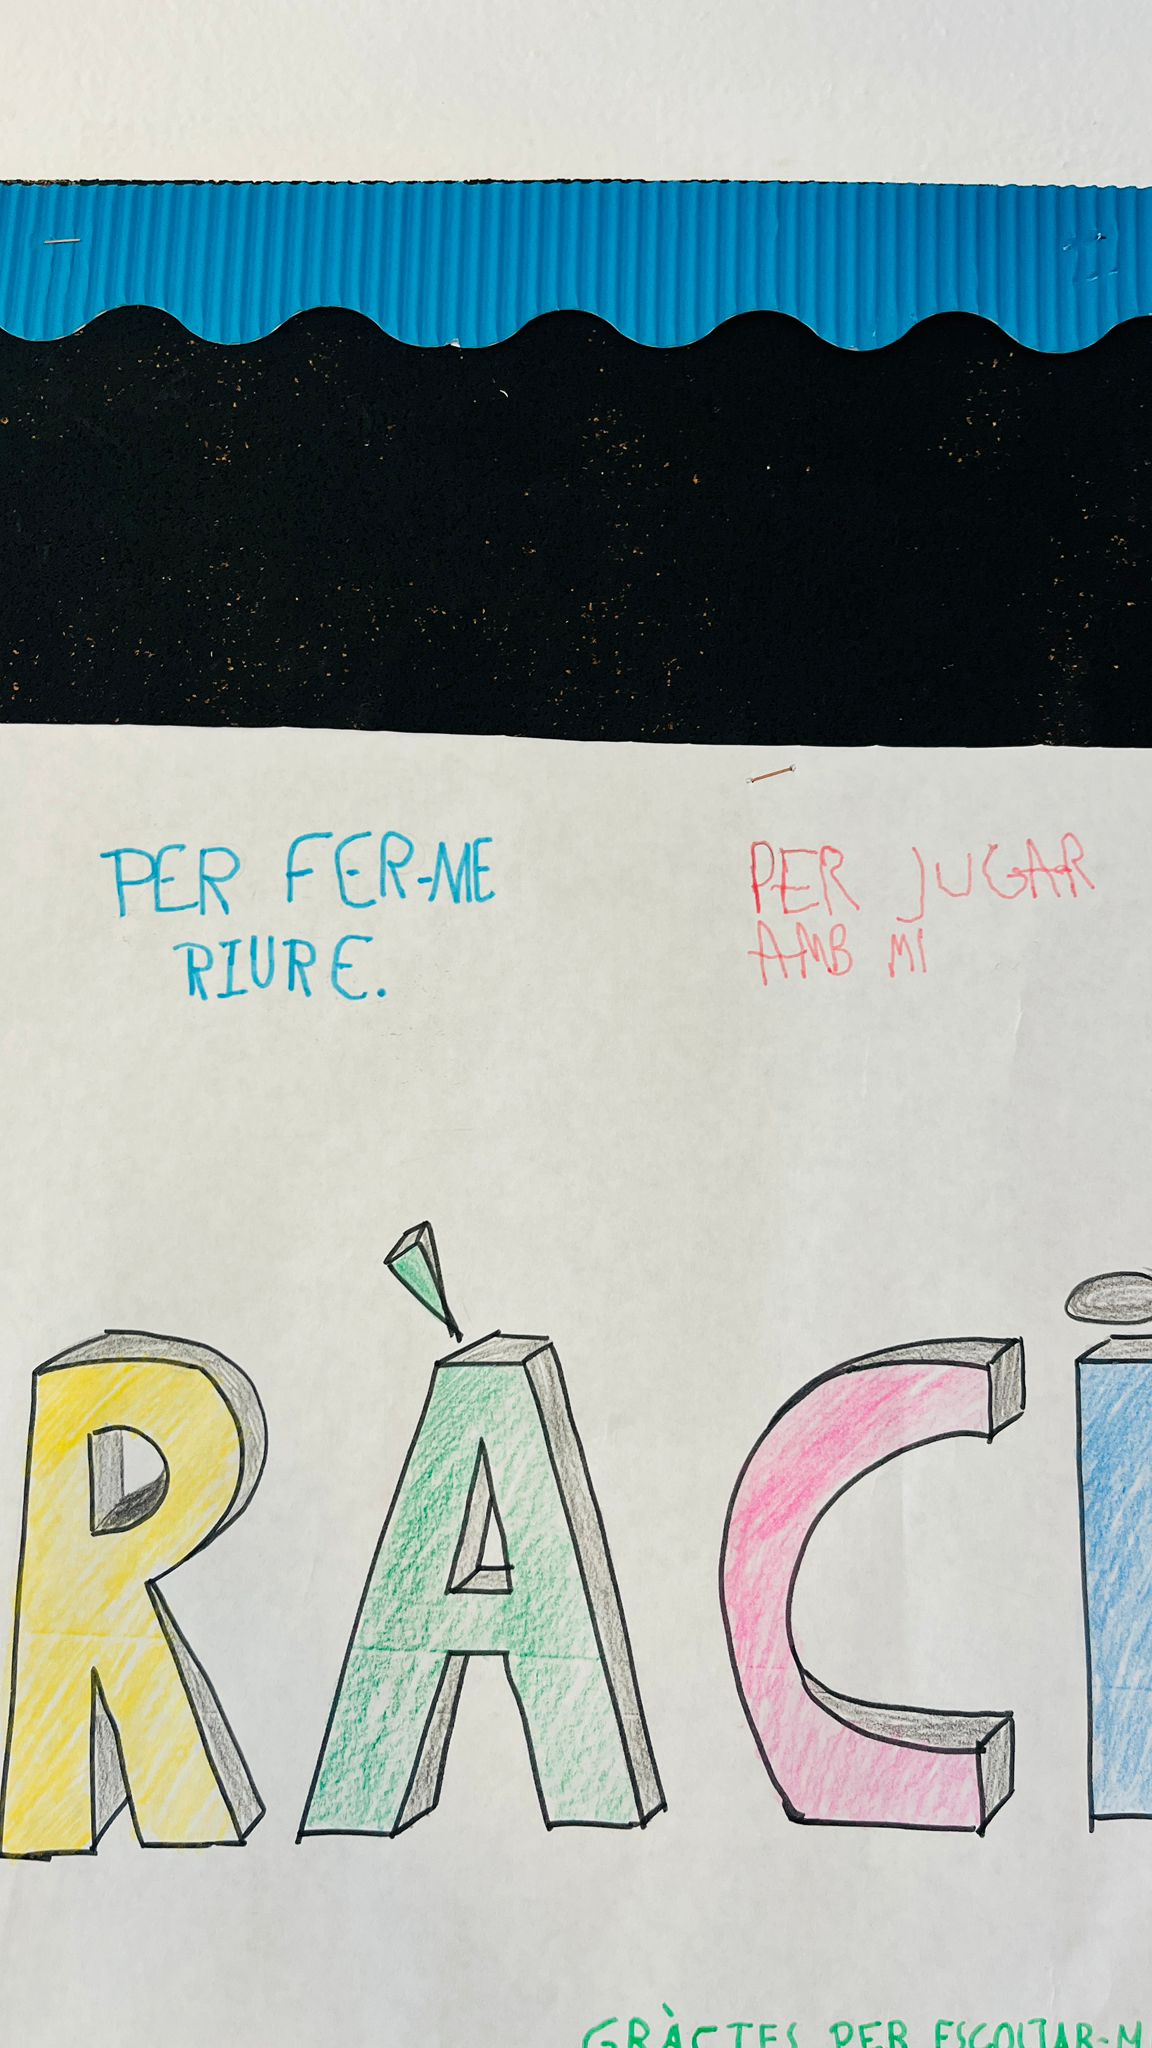 PER FER-ME
RIURE.
PER JUGAR
AMB MI
RÀCI
GRÀCIES PER ESCOLTAR-M